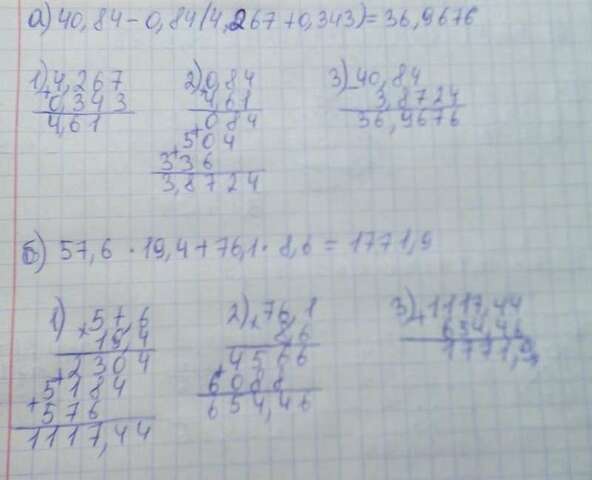 а) 40,84 - 0,84(4,267 + 0,343) = 36,9676
1) 4,267
+ 0,343
4,61
2) 0,84
4,61
084
+ 504
+ 336
3,8724
3) - 40,84
3,8724
36,9676
б) 57,6 · 19,4 + 76,1 · 8,6 = 1771,9
1) 57,6
× 19,4
2304
+ 5184
+ 576
1117,44
2) 76,1
× 8,6
4566
+ 6088
654,46
3) + 1117,44
654,46
1771,9